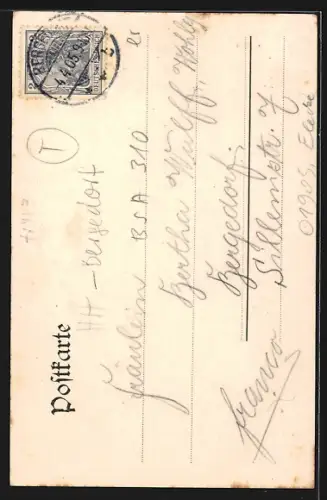 Postkarte
Fräulein
Bertha Wulff, Wohlg
Bergedorf.
Sillemstr. 7
franco
HH-Bergedorf
BSA 310
T
BERGEDORF
4.4.05.9
2